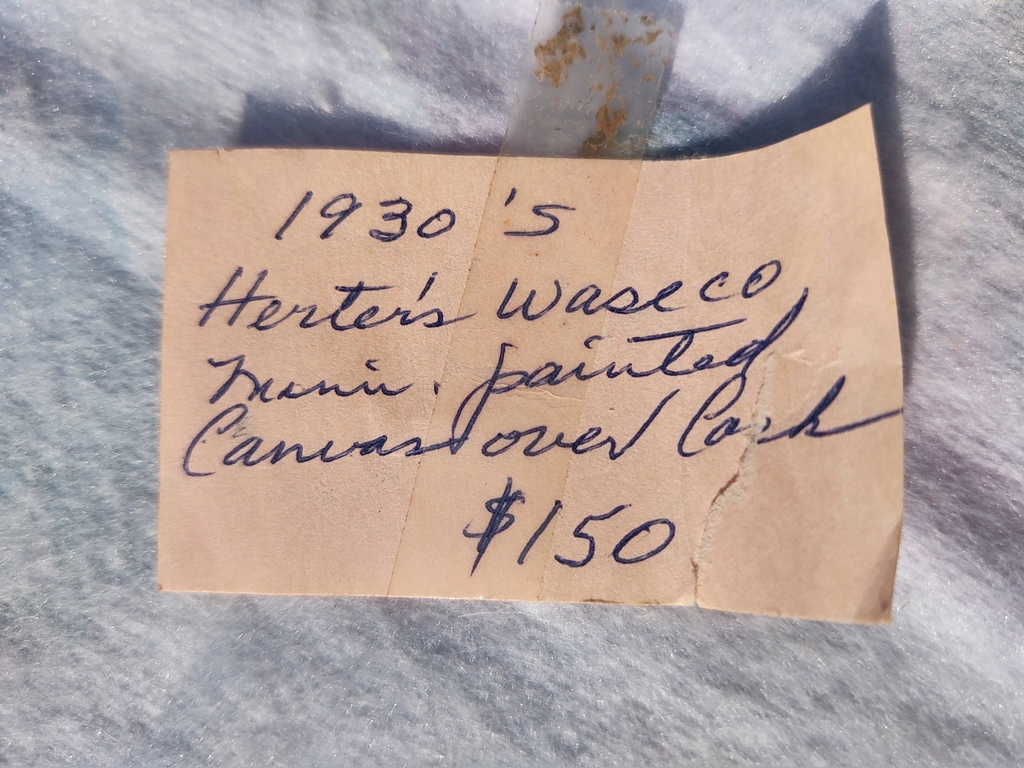 1930's
Herter's Waseco
Minn. painted
Canvas over Cork
$150